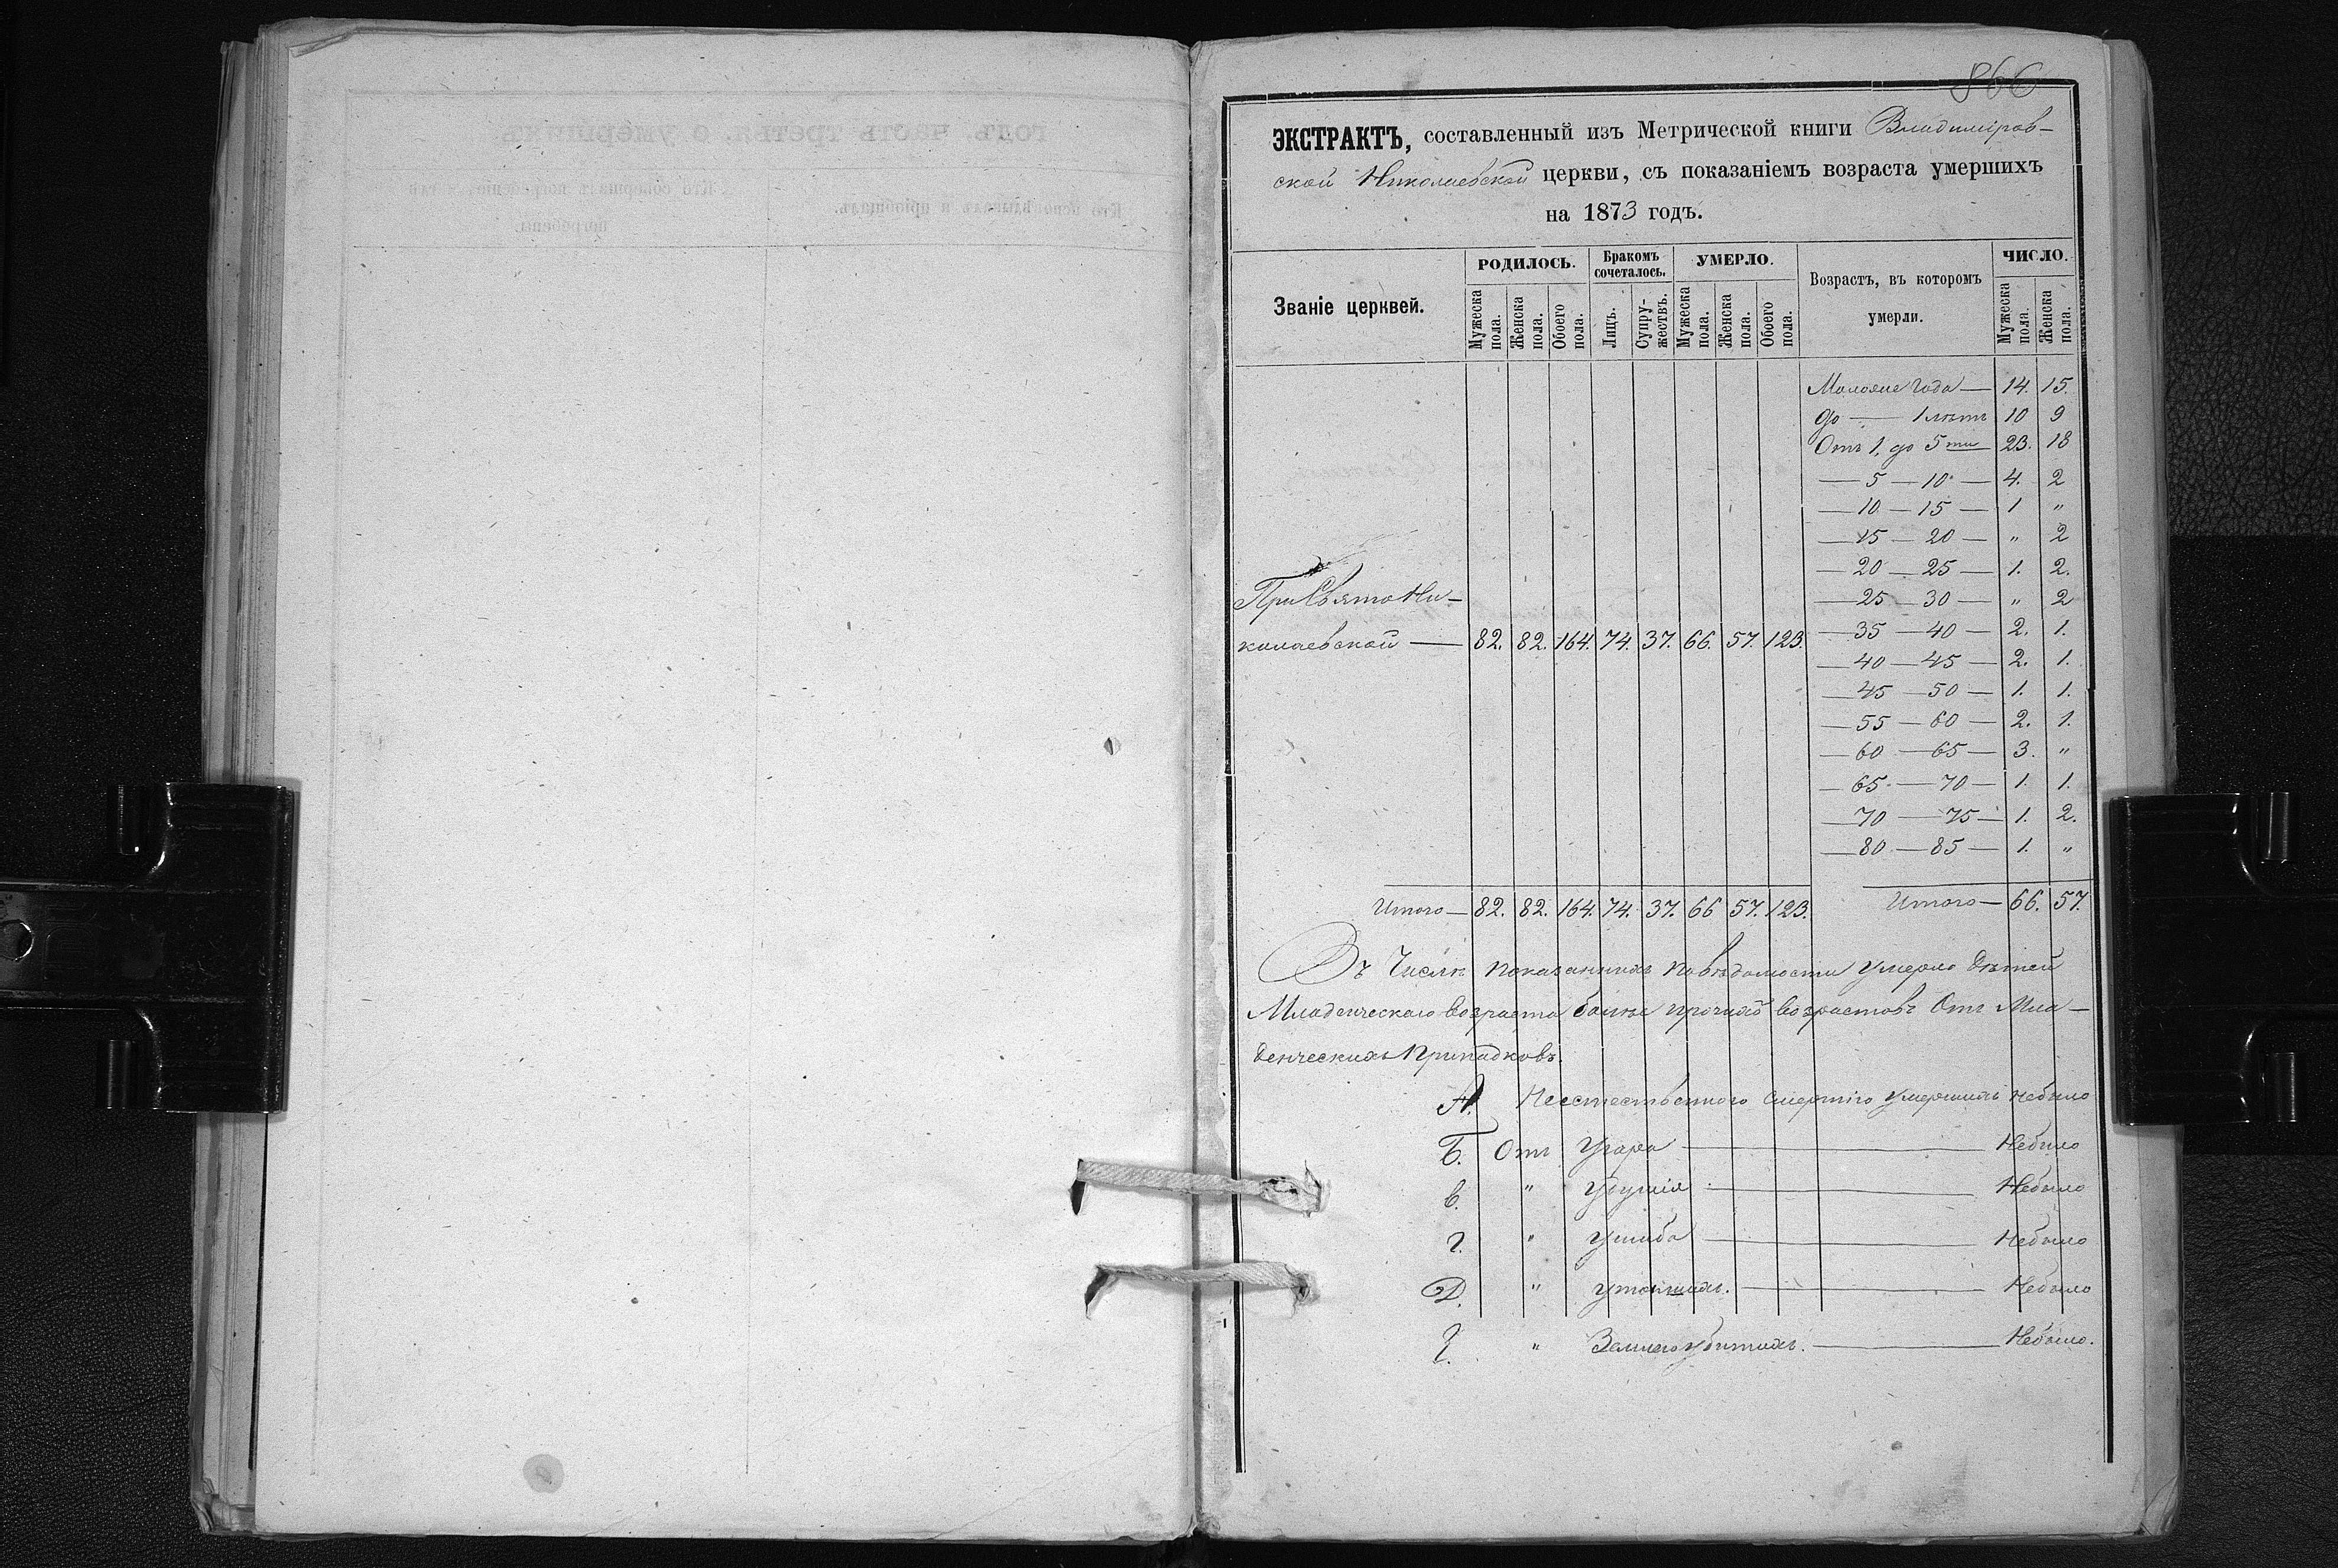 866
ЭКСТРАКТЪ, составленный изъ Метрической книги Владиміров-
ской Николаевской церкви, съ показаніемъ возраста умершихъ
на 1873 годъ.
Званіе церквей. РОДИЛОСЬ. Бракомъ сочеталось. УМЕРЛО. Возрастъ, въ которомъ умерли. ЧИСЛО.
Мужеска пола. Женска пола. Обоего пола. Лицъ. Супру-жествъ. Мужеска пола. Женска пола. Обоего пола. Мужеска пола. Женска пола.
года — 14. 15.
до — 1 лѣтъ 10 9
Отъ 1. до 5ти — 23. 18
— 5 — 10 — 4. 2
— 10 — 15 — 1 "
— 15 — 20 — " 2
— 20 — 25 — 1. 2.
— 25 — 30 — " 2
— 35 — 40 — 2. 1.
— 40 — 45 — 2. 1.
— 45 — 50 — 1. 1.
— 55 — 60 — 2. 1.
— 60 — 65 — 3. "
— 65 — 70 — 1. 1.
— 70 — 75 — 1. 2.
— 80 — 85 — 1. "
При Свято Ни-
колаевской — 82. 82. 164. 74. 37. 66. 57. 123.
Итого — 82. 82. 164. 74. 37. 66 57. 123. Итого — 66. 57.
Въ Числѣ показанныхъ по вѣдомости умерло дѣтей
Младенческаго возраста болѣе прочихъ возрастовъ Отъ Мла-
денческихъ припадковъ.
А. Неестественного смертію умершихъ небыло
Б. Отъ Угара — Небыло
в. " Удушія — Небыло
г. " Ушиба — Небыло
Д. " утопшихъ. — Небыло
" Землею убитыхъ. — Небыло.
годъ, часть третья, о умершихъ
Кто исповѣдывалъ и пріобщалъ.
Кто совершалъ погребеніе и гдѣ
погребены.